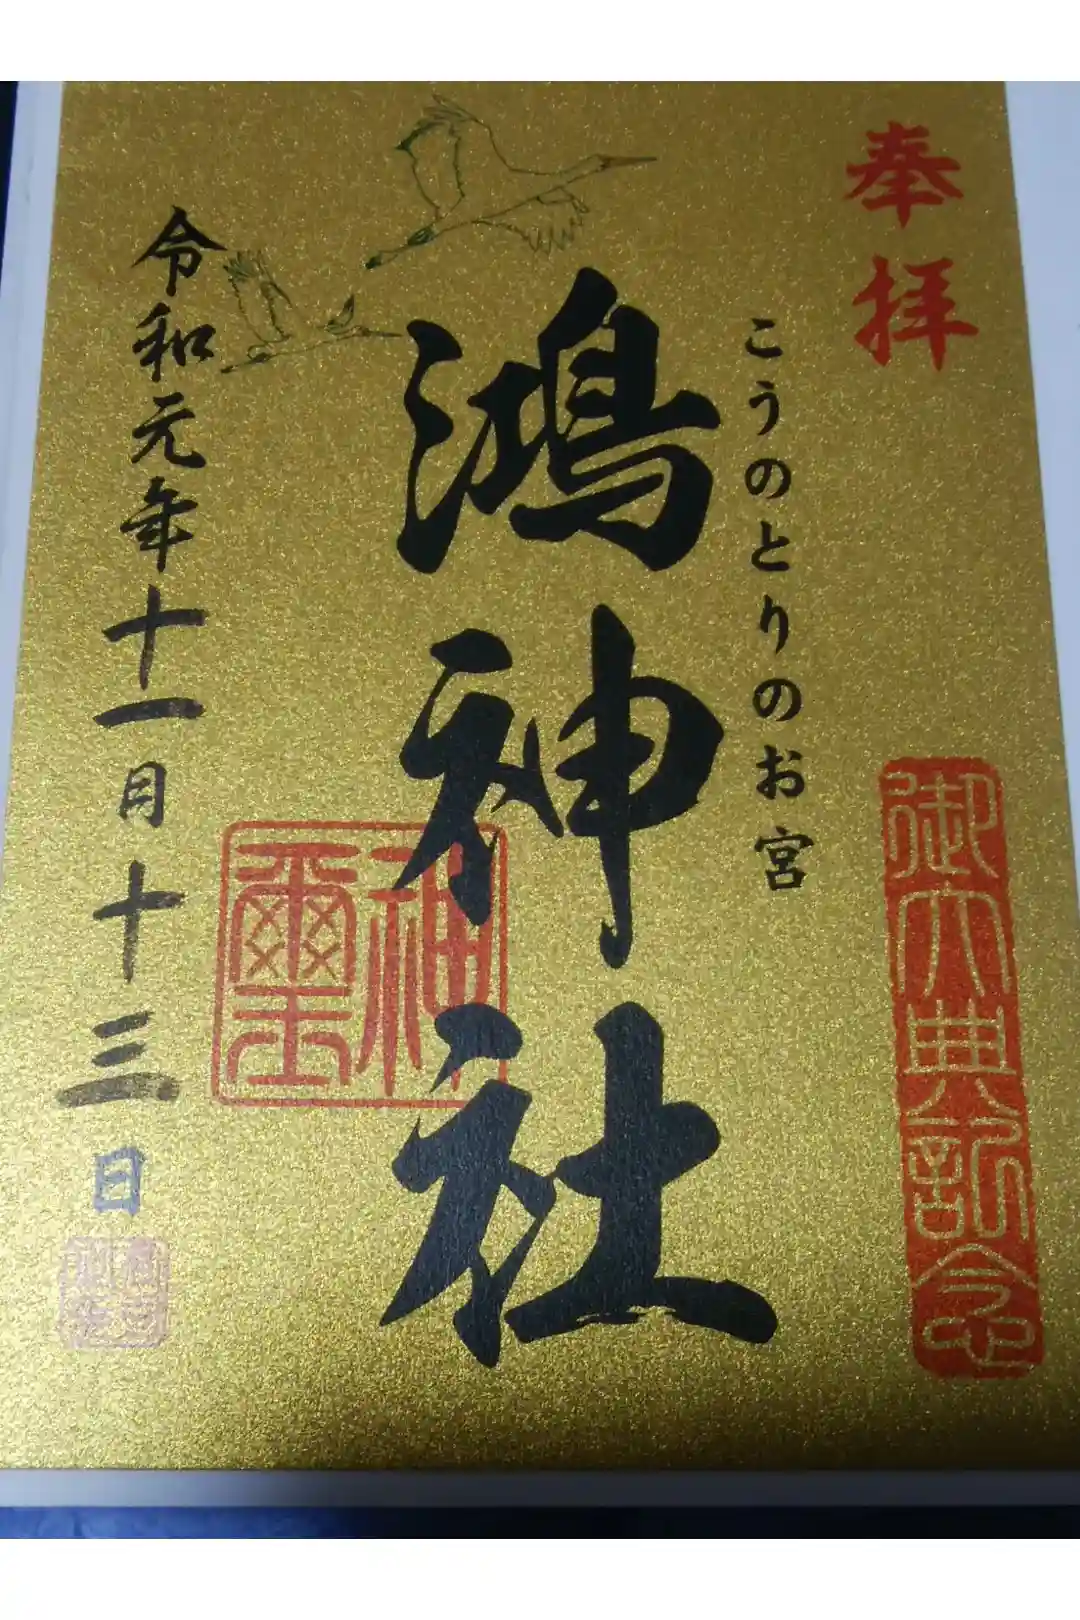 奉拝
御大典記念
こうのとりのお宮
鴻神社
神璽
令和元年十一月十三日